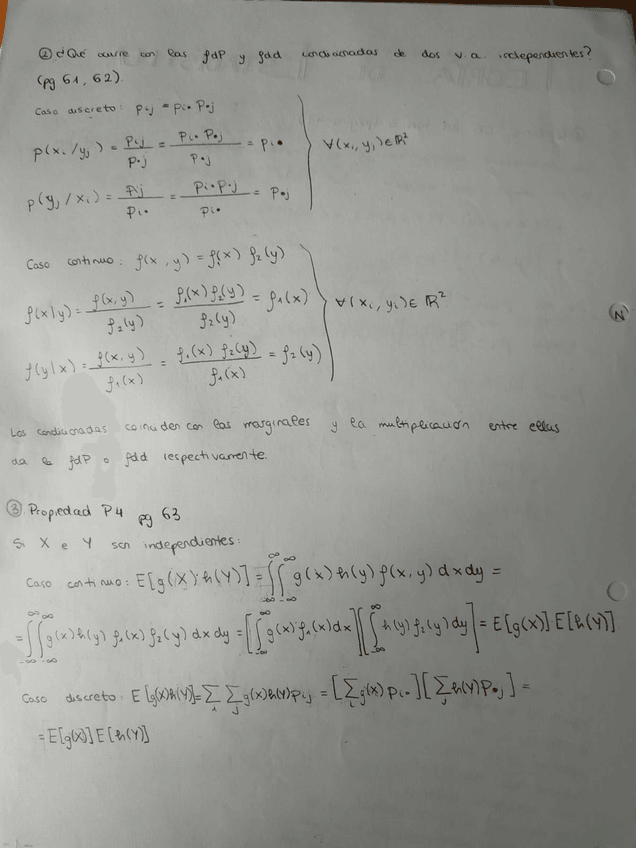 ② ¿Qué ocurre con las fdP y fdd condicionadas de dos v.a. independientes?
(pg 61, 62).
Caso discreto: pij = pi• P•j
p(xi/yj) = pij/p•j = pi• P•j/p•j = pi•
∀(xi, yi) ∈ ℝ²
p(yj/xi) = pij/pi• = pi• p•j/pi• = p•j
Caso continuo: f(x, y) = f₁(x) f₂(y)
f(x|y) = f(x,y)/f₂(y) = f₁(x) f₂(y)/f₂(y) = f₁(x)
∀(xi, yi) ∈ ℝ²
N
f(y|x) = f(x,y)/f₁(x) = f₁(x) f₂(y)/f₁(x) = f₂(y)
Las condicionadas coinciden con las marginales y la multiplicación entre ellas
da la fdP o fdd respectivamente.
③ Propiedad P4 pg 63
Si X e Y son independientes:
Caso continuo: E[g(X)·h(Y)] = ∫_{-∞}^{∞}∫_{-∞}^{∞} g(x) h(y) f(x,y) dx dy =
= ∫_{-∞}^{∞}∫_{-∞}^{∞} g(x) h(y) f₁(x) f₂(y) dx dy = [∫_{-∞}^{∞} g(x) f₁(x) dx][∫_{-∞}^{∞} h(y) f₂(y) dy] = E[g(X)] E[h(Y)]
Caso discreto: E[g(X)h(Y)] = ∑_i ∑_j g(x) h(Y) pij = [∑_i g(x) pi•][∑_j h(Y) P•j] =
= E[g(X)] E[h(Y)]